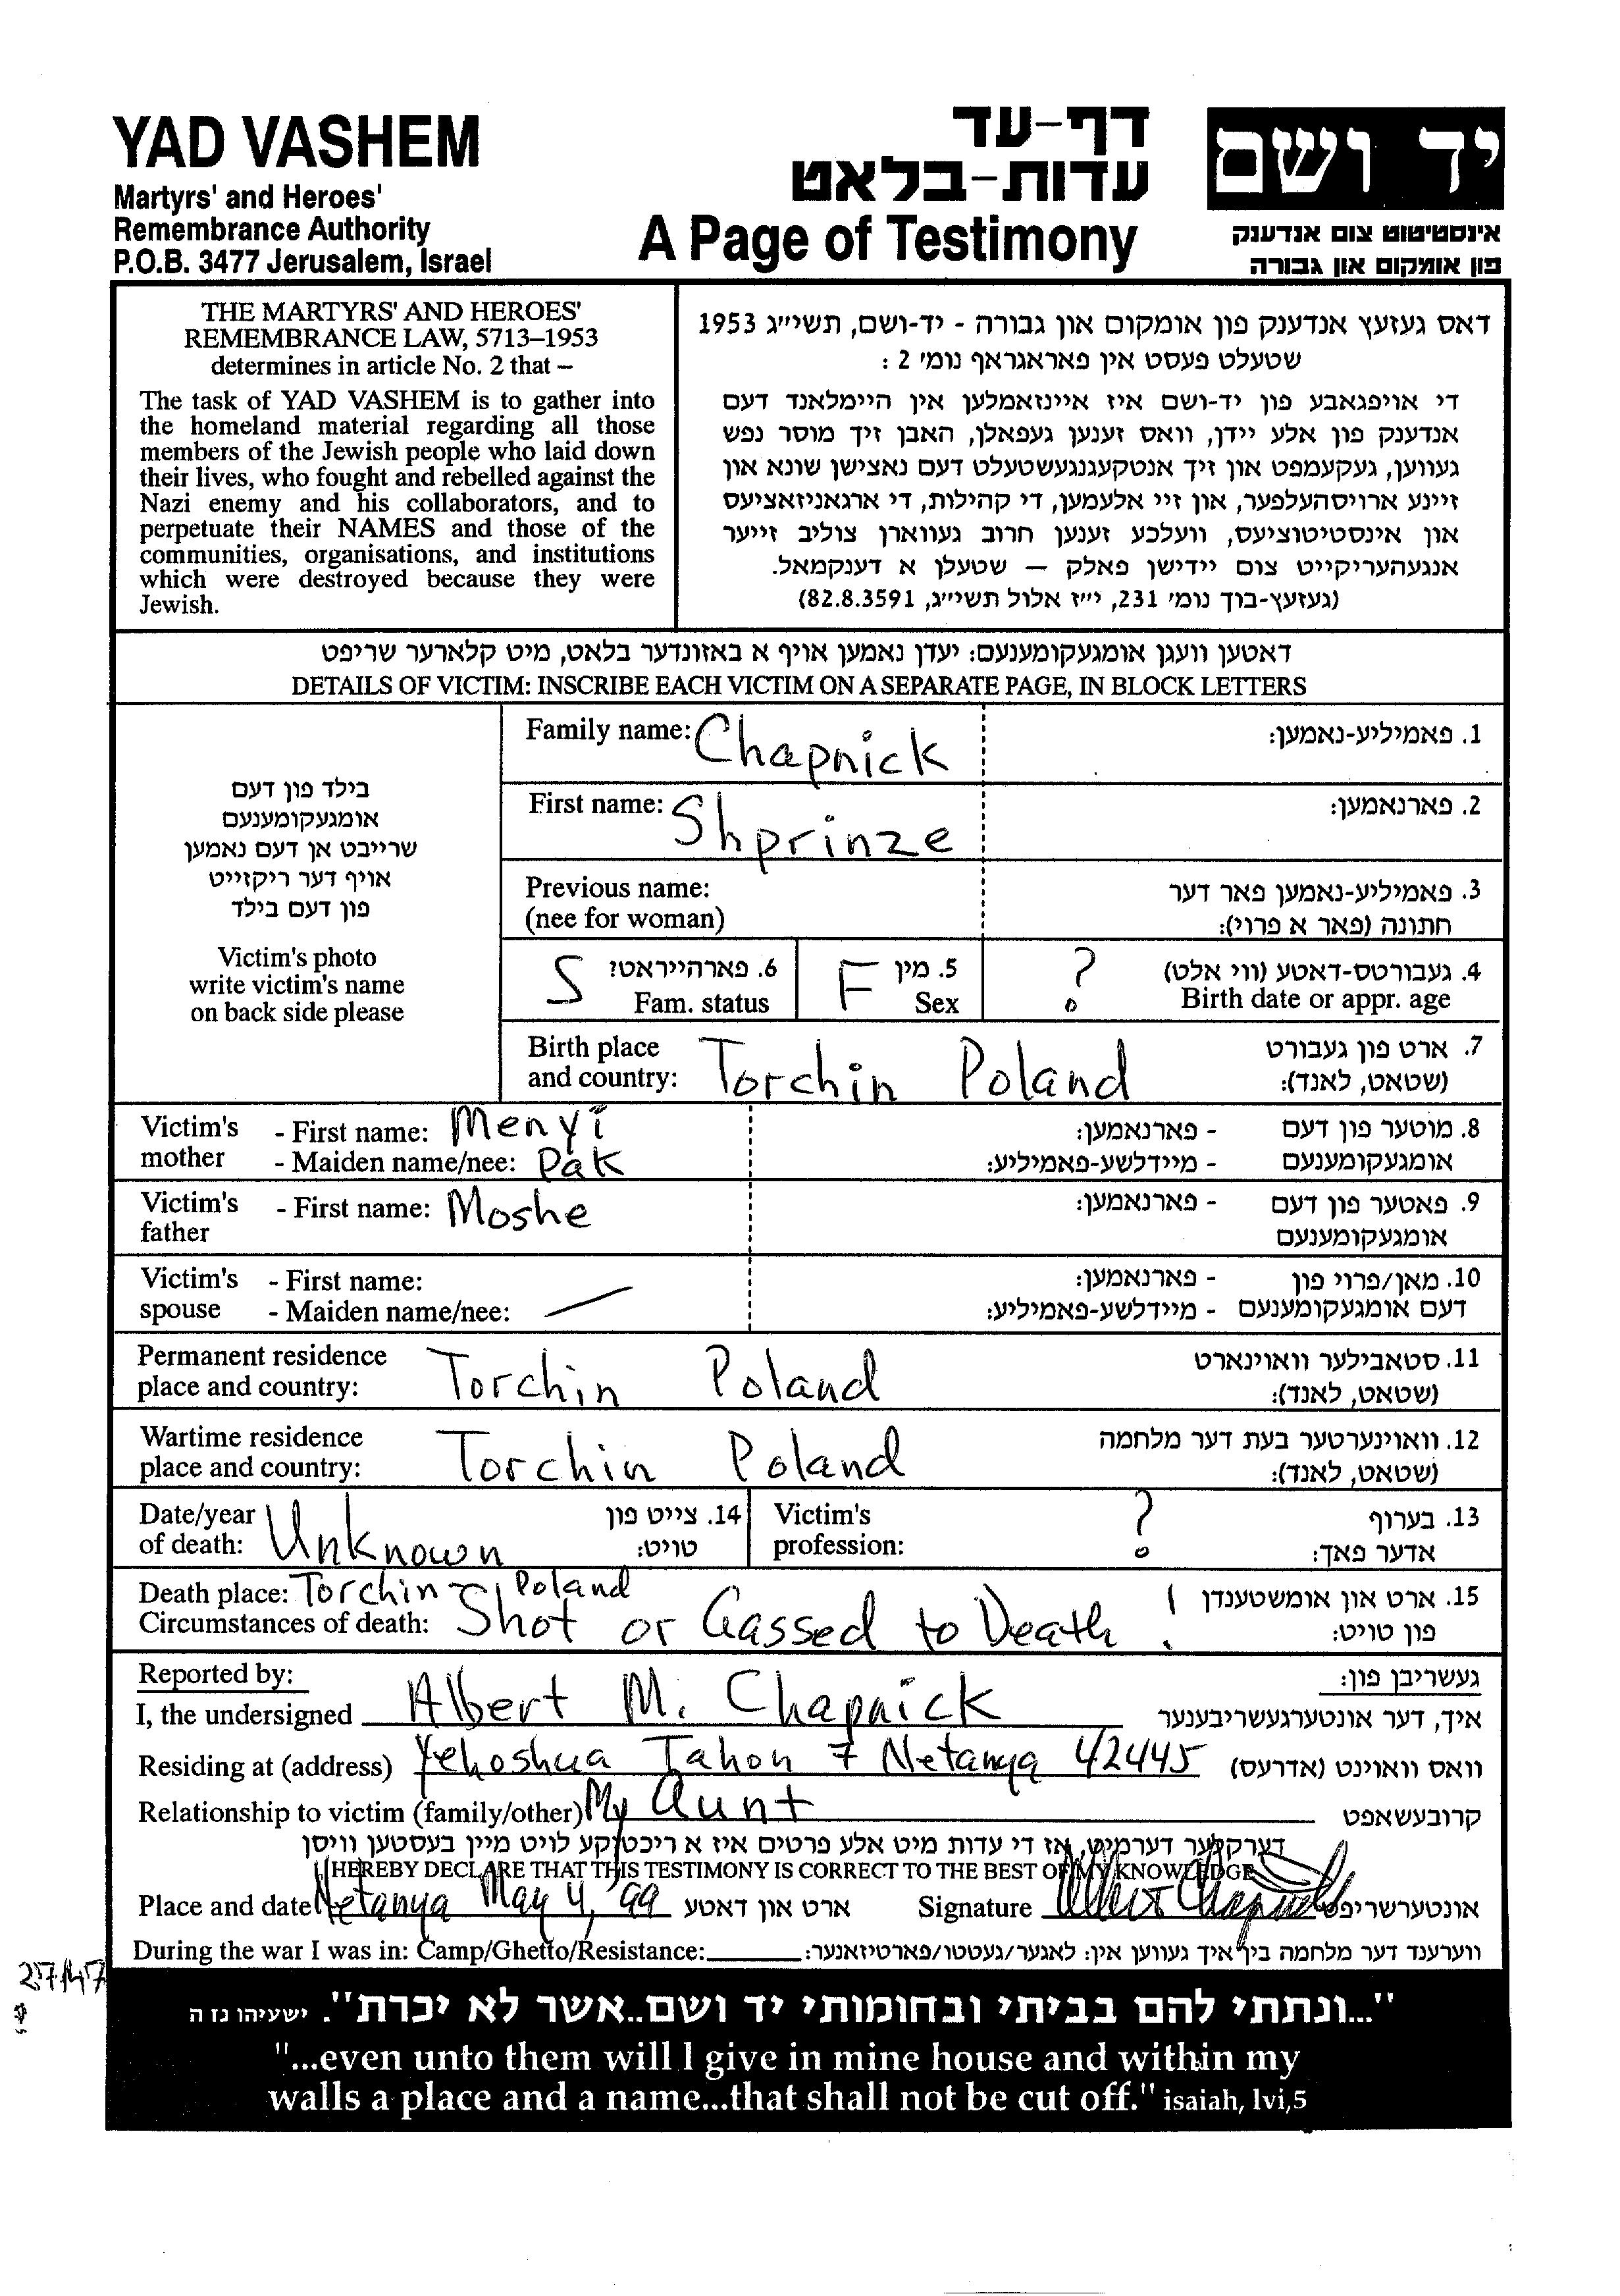 YAD VASHEM
Martyrs' and Heroes'
Remembrance Authority
P.O.B. 3477 Jerusalem, Israel
דף-עד
עדות-בלאט
A Page of Testimony
יד ושם
אינסטיטוט צום אנדענק
פון אומקום און גבורה
THE MARTYRS' AND HEROES'
REMEMBRANCE LAW, 5713–1953
determines in article No. 2 that –
The task of YAD VASHEM is to gather into
the homeland material regarding all those
members of the Jewish people who laid down
their lives, who fought and rebelled against the
Nazi enemy and his collaborators, and to
perpetuate their NAMES and those of the
communities, organisations, and institutions
which were destroyed because they were
Jewish.
דאס געזעץ אנדענק פון אומקום און גבורה - יד-ושם, תשי״ג 1953
שטעלט פעסט אין פאראגראף נומ׳ 2 :
די אויפגאבע פון יד-ושם איז איינזאמלען אין היימלאנד דעם
אנדענק פון אלע יידן, וואס זענען געפאלן, האבן זיך מוסר נפש
געווען, געקעמפט און זיך אנטקעגנגעשטעלט דעם נאצישן שונא און
זיינע ארויסהעלפער, און זיי אלעמען, די קהילות, די ארגאניזאציעס
און אינסטיטוציעס, וועלכע זענען חרוב געווארן צוליב זייער
אנגעהעריקייט צום יידישן פאלק — שטעלן א דענקמאל.
(געזעץ-בוך נומ׳ 231, י״ז אלול תשי״ג, 82.8.3591)
דאטען וועגן אומגעקומענעם: יעדן נאמען אויף א באזונדער בלאט, מיט קלארער שריפט
DETAILS OF VICTIM: INSCRIBE EACH VICTIM ON A SEPARATE PAGE, IN BLOCK LETTERS
בילד פון דעם
אומגעקומענעם
שרייבט אן דעם נאמען
אויף דער ריקזייט
פון דעם בילד
Victim's photo
write victim's name
on back side please
Family name: Chapnick 1. פאמיליע-נאמען:
First name: Shprinze 2. פארנאמען:
Previous name: 3. פאמיליע-נאמען פאר דער
(nee for woman) חתונה (פאר א פרוי):
S 6. פארהייראט? F 5. מין ? 4. געבורטס-דאטע (ווי אלט)
Fam. status Sex Birth date or appr. age
Birth place 7. ארט פון געבורט
and country: Torchin Poland (שטאט, לאנד):
Victim's - First name: Menyi - פארנאמען: 8. מוטער פון דעם
mother - Maiden name/nee: Pak - מיידלשע-פאמיליע: אומגעקומענעם
Victim's - First name: Moshe - פארנאמען: 9. פאטער פון דעם
father אומגעקומענעם
Victim's - First name: - פארנאמען: 10. מאן/פרוי פון
spouse - Maiden name/nee: — - מיידלשע-פאמיליע: דעם אומגעקומענעם
Permanent residence 11. סטאבילער וואוינארט
place and country: Torchin Poland (שטאט, לאנד):
Wartime residence 12. וואוינערטער בעת דער מלחמה
place and country: Torchin Poland (שטאט, לאנד):
Date/year 14. צייט פון Victim's ? 13. בערוף
of death: Unknown טויט: profession: אדער פאך:
Death place: Torchin, Poland 15. ארט און אומשטענדן
Circumstances of death: Shot or Gassed to Death! פון טויט:
Reported by: געשריבן פון:
I, the undersigned Albert M. Chapnick איך, דער אונטערגעשריבענער
Residing at (address) Yehoshua Tahon 7 Netanya 42445 וואס וואוינט (אדרעס)
Relationship to victim (family/other) My Aunt קרובעשאפט
דערקלער דערמיט, אז די עדות מיט אלע פרטים איז א ריכטיקע לויט מיין בעסטען וויסן
I HEREBY DECLARE THAT THIS TESTIMONY IS CORRECT TO THE BEST OF MY KNOWLEDGE
Place and date Netanya May 4, 99 ארט און דאטע Signature Albert Chapnick אונטערשריפט
During the war I was in: Camp/Ghetto/Resistance: ווערענד דער מלחמה בין איך געווען אין: לאגער/געטטו/פארטיזאנער:
"...ונתתי להם בביתי ובחומותי יד ושם..אשר לא יכרת". ישעיהו נז ה
"...even unto them will I give in mine house and within my
walls a place and a name...that shall not be cut off." isaiah, lvi,5